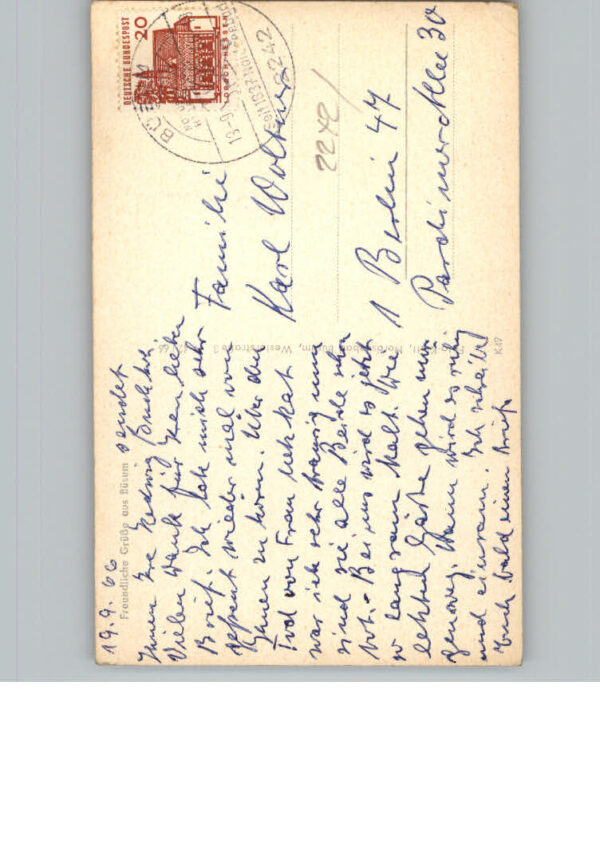 19.9.66
Freundliche Grüße aus Büsum sendet
Ihnen Ihre Hedwig
Vielen Dank für Ihren lieben
Brief. Ich hab mich sehr
gefreut wieder mal von
Ihnen zu hören. Über den
Tod von Frau
war ich sehr traurig nun
sind sie alle Beide schon
tot. Bei uns wird es jetzt
so langsam kalt. Die
letzten Gäste gehen nun
genauso. Dann wird es ruhig
und einsam. Ich schreibe
Euch bald einen Brief
DEUTSCHE BUNDESPOST
20
2242
BÜ
Familie
Karl Wolter
2272/
1 Berlin 47
Parchimer Allee 30
Westerstraße 3
K 49